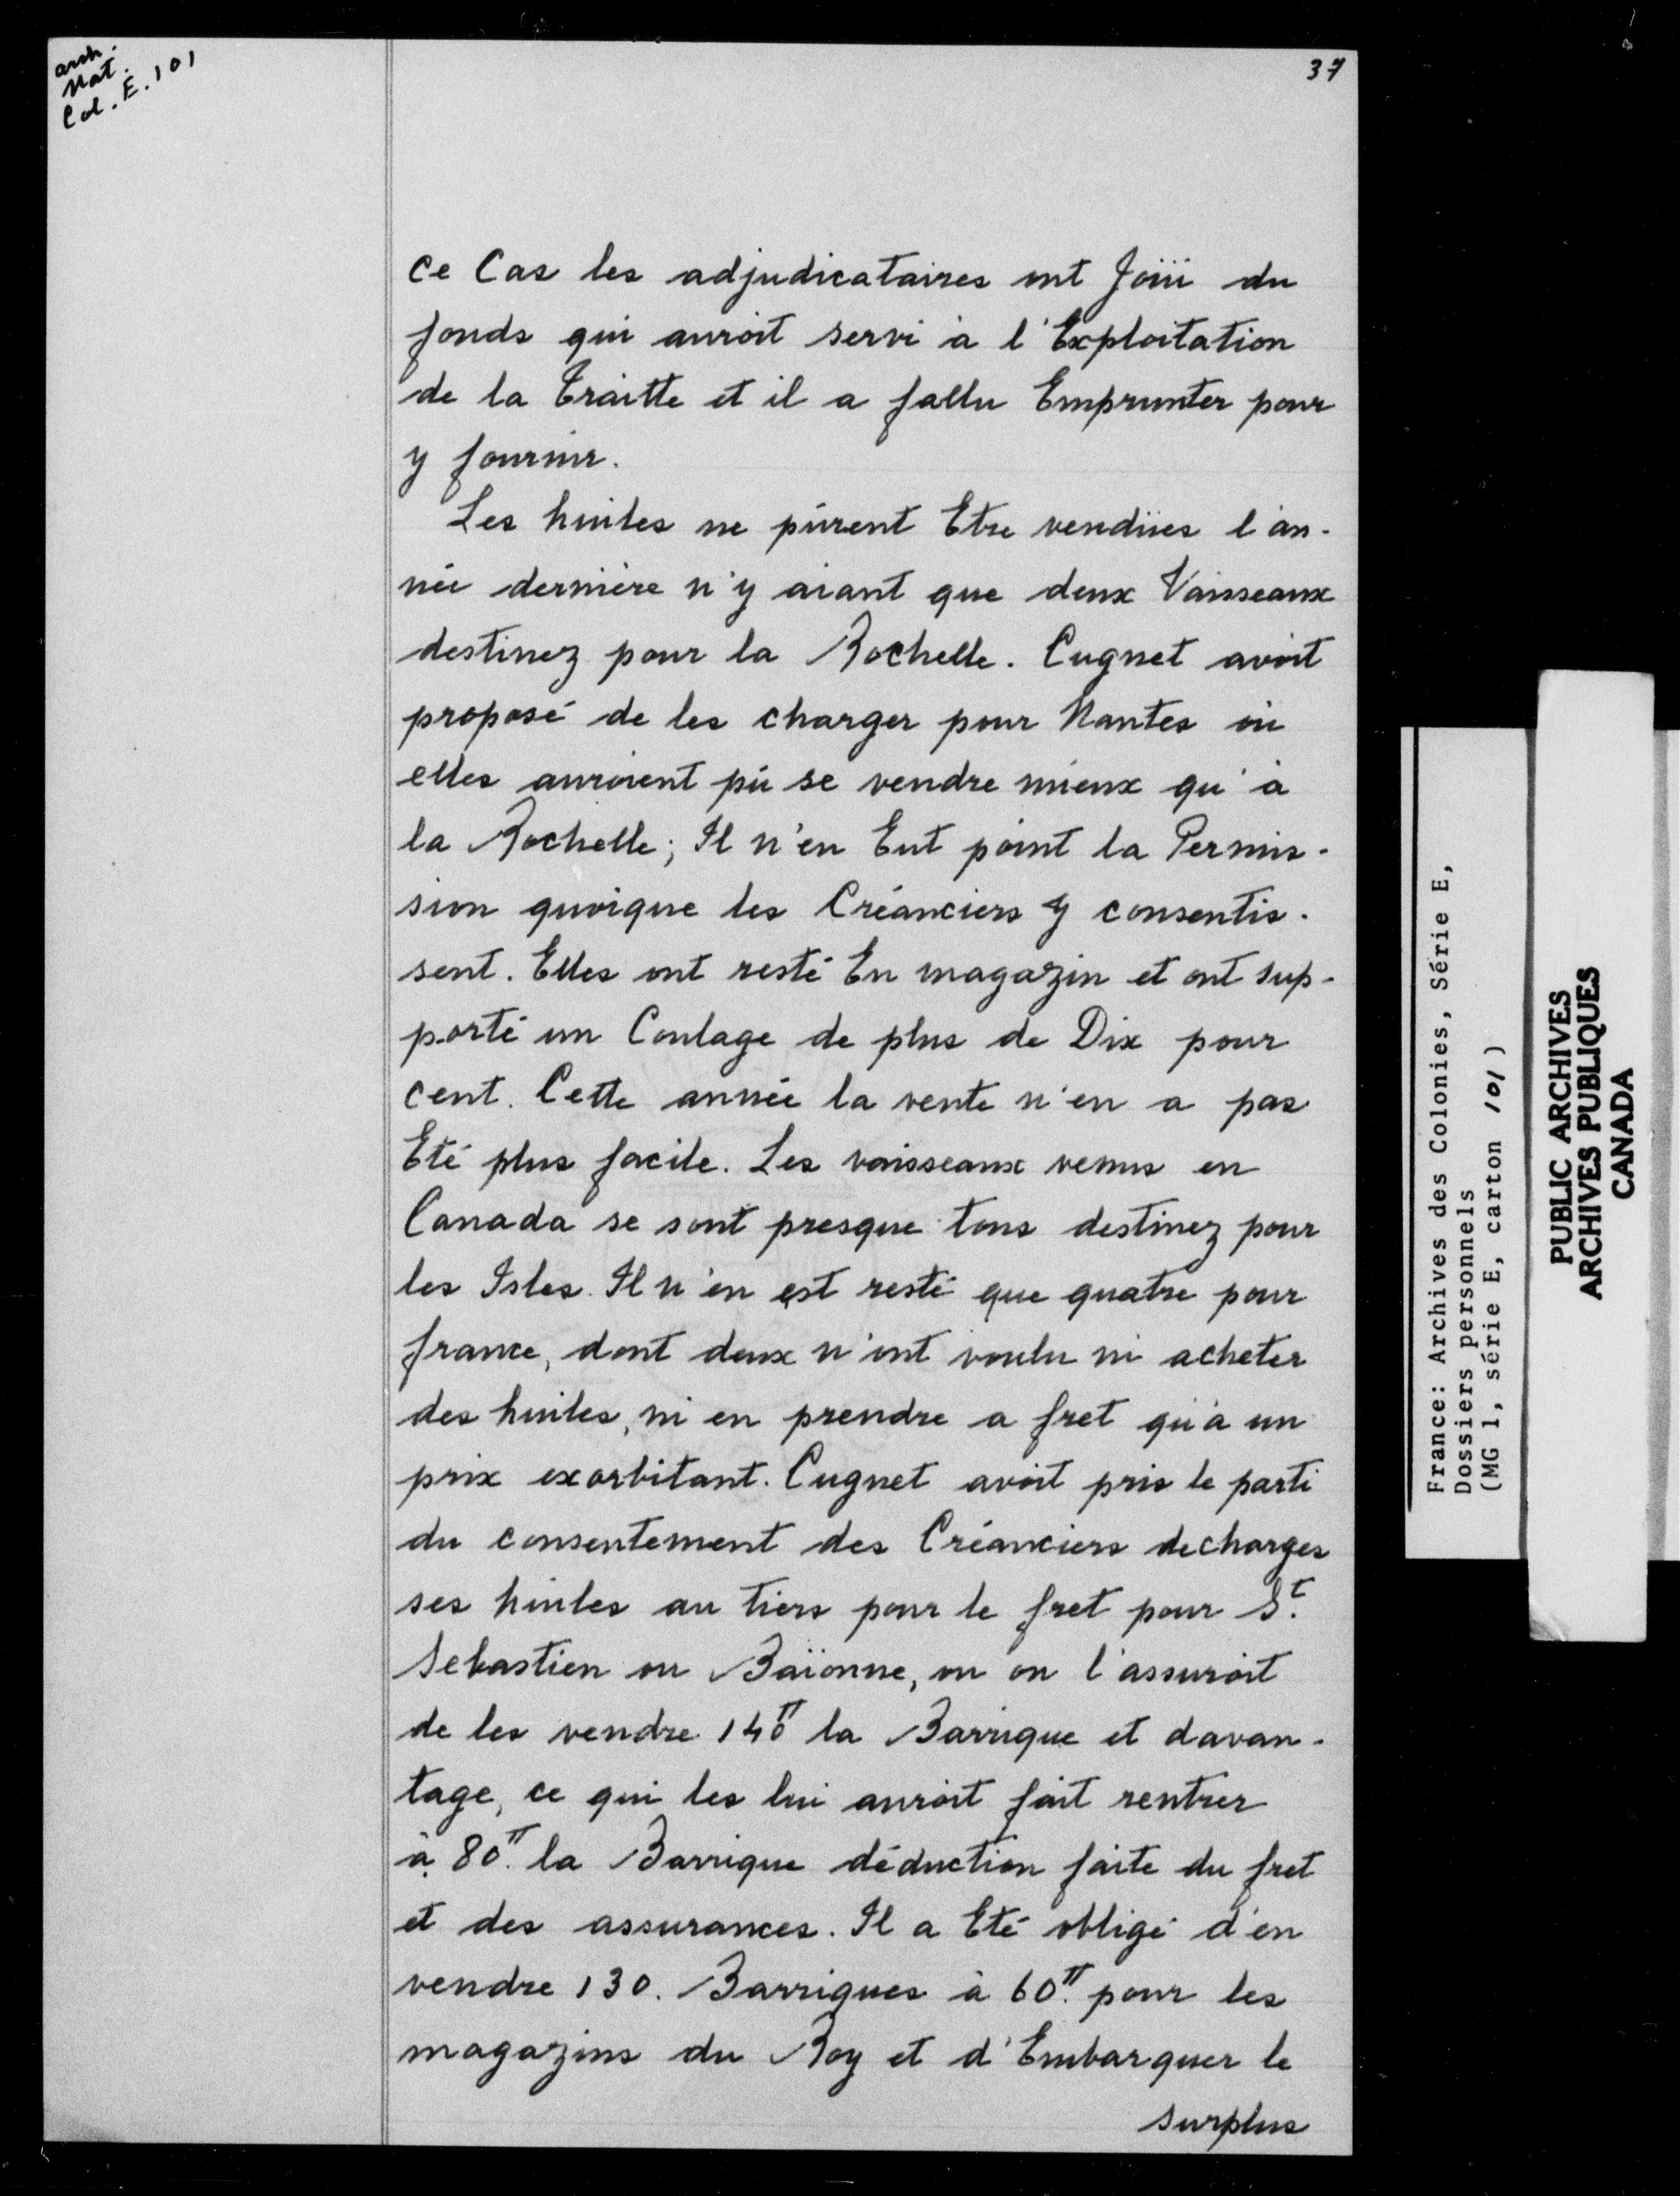 arch.
Nat.
Col. E. 101
37
ce Cas les adjudicataires ont Joüi du
fonds qui auroit servi à l'Exploitation
de la Traitte et il a fallu Emprunter pour
y fournir.
Les huiles ne pûrent Etre vendües l'an-
née dernière n'y aiant que deux Vaisseaux
destinez pour la Rochelle. Cugnet avoit
proposé de les charger pour Nantes où
elles auroient pû se vendre mieux qu'à
la Rochelle; Il n'en Eut point la Permis-
sion quoique les Créanciers y consentis-
sent. Elles ont resté En magazin et ont sup-
porté un Coulage de plus de Dix pour
cent. Cette année la vente n'en a pas
Eté plus facile. Les vaisseaux venus en
Canada se sont presque tous destinez pour
les Isles. Il n'en est resté que quatre pour
france, dont deux n'ont voulu ni acheter
des huiles, ni en prendre a fret qu'à un
prix exorbitant. Cugnet avoit pris le parti
du consentement des Créanciers de charger
ses huiles au tiers pour le fret pour St.
Sebastien ou Baïonne, ou on l'assuroit
de les vendre 140ᵗᵗ la Barrique et davan-
tage, ce qui les lui auroit fait rentrer
à 80ᵗᵗ. la Barrique déduction faite du fret
et des assurances. Il a Eté obligé d'en
vendre 130. Barriques à 60ᵗᵗ. pour les
magazins du Roy et d'Embarquer le
surplus
France: Archives des Colonies, Série E,
Dossiers personnels
(MG 1, série E, carton 101)
PUBLIC ARCHIVES
ARCHIVES PUBLIQUES
CANADA